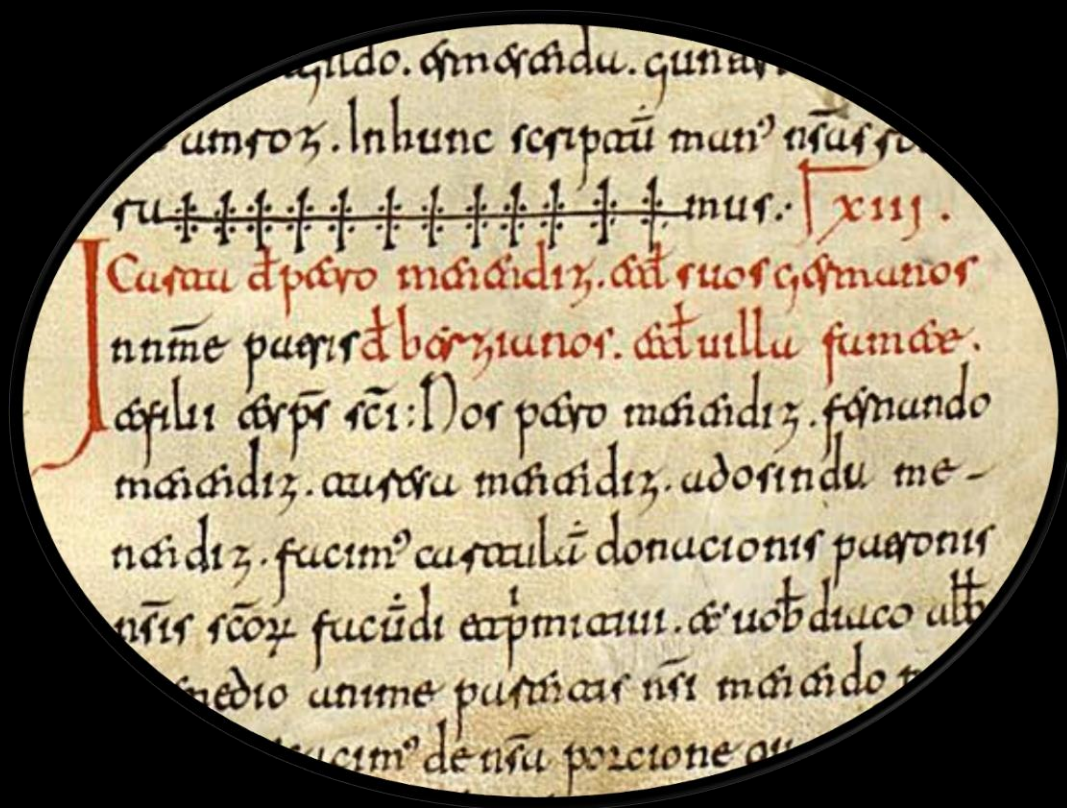 In hunc scriptū manꝰ nr̄as ro
ra mus: xiij.
Carta đ petro menendiz. et đ suos germanos
In nm̄e patris đ berzianos. et đ uilla fumete.
et filii et sp̄s sc̄i: Nos petro menendiz. fernando
menendiz. menendiz. adosinda me-
nendiz. facimꝰ cartulā donacionis patronis
nr̄is sc̄oꝝ facūdi et primitiui. et uob̄ diaco abb̄
medio anime parentis nr̄i menendo
acimꝰ de nr̄a porcione